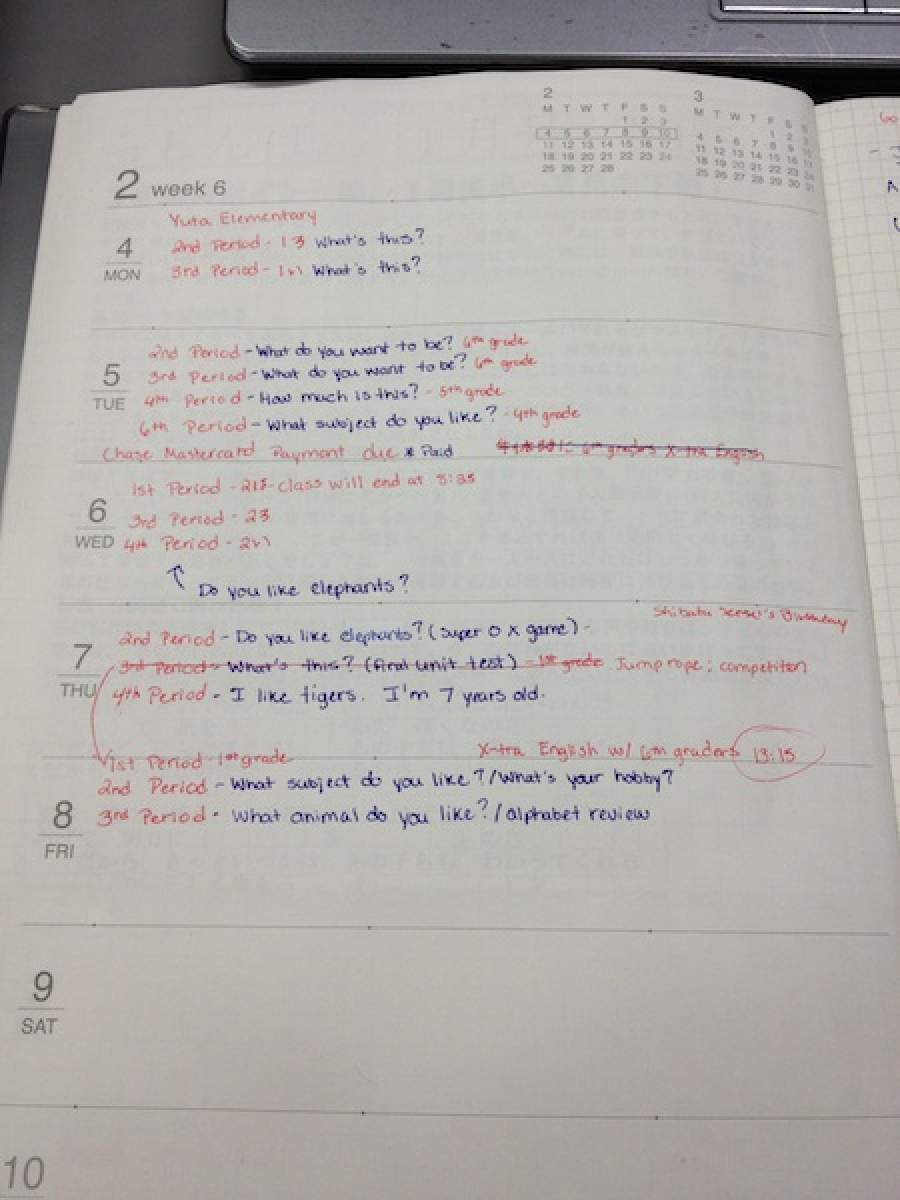 2 3
M T W T F S S M T W T F S S
1 2 3 1 2 3
4 5 6 7 8 9 10 4 5 6 7 8 9 10
11 12 13 14 15 16 17 11 12 13 14 15 16 17
18 19 20 21 22 23 24 18 19 20 21 22 23 24
25 26 27 28 25 26 27 28 29 30 31
2 week 6
Yuta Elementary
4 MON
2nd Period - 13 What's this?
3rd Period - What's this?
5 TUE
2nd Period - What do you want to be? 6th grade
3rd Period - What do you want to be? 6th grade
4th Period - How much is this? - 5th grade
6th Period - What subject do you like? - 4th grade
Chase Mastercard Payment due * Paid 6th graders X-tra English
6 WED
1st Period - class will end at
3rd Period - 23
4th Period -
Do you like elephants?
Birthday
7 THU
2nd Period - Do you like elephants? (Super O X game) -
3rd Period - What's this? (final unit test) - 1st grade Jump rope; competition
4th Period - I like tigers. I'm 7 years old.
X-tra English w/ 6th graders 13:15
1st Period - 1st grade
8 FRI
2nd Period - What subject do you like? / What's your hobby?
3rd Period - What animal do you like? / alphabet review
9
SAT
10